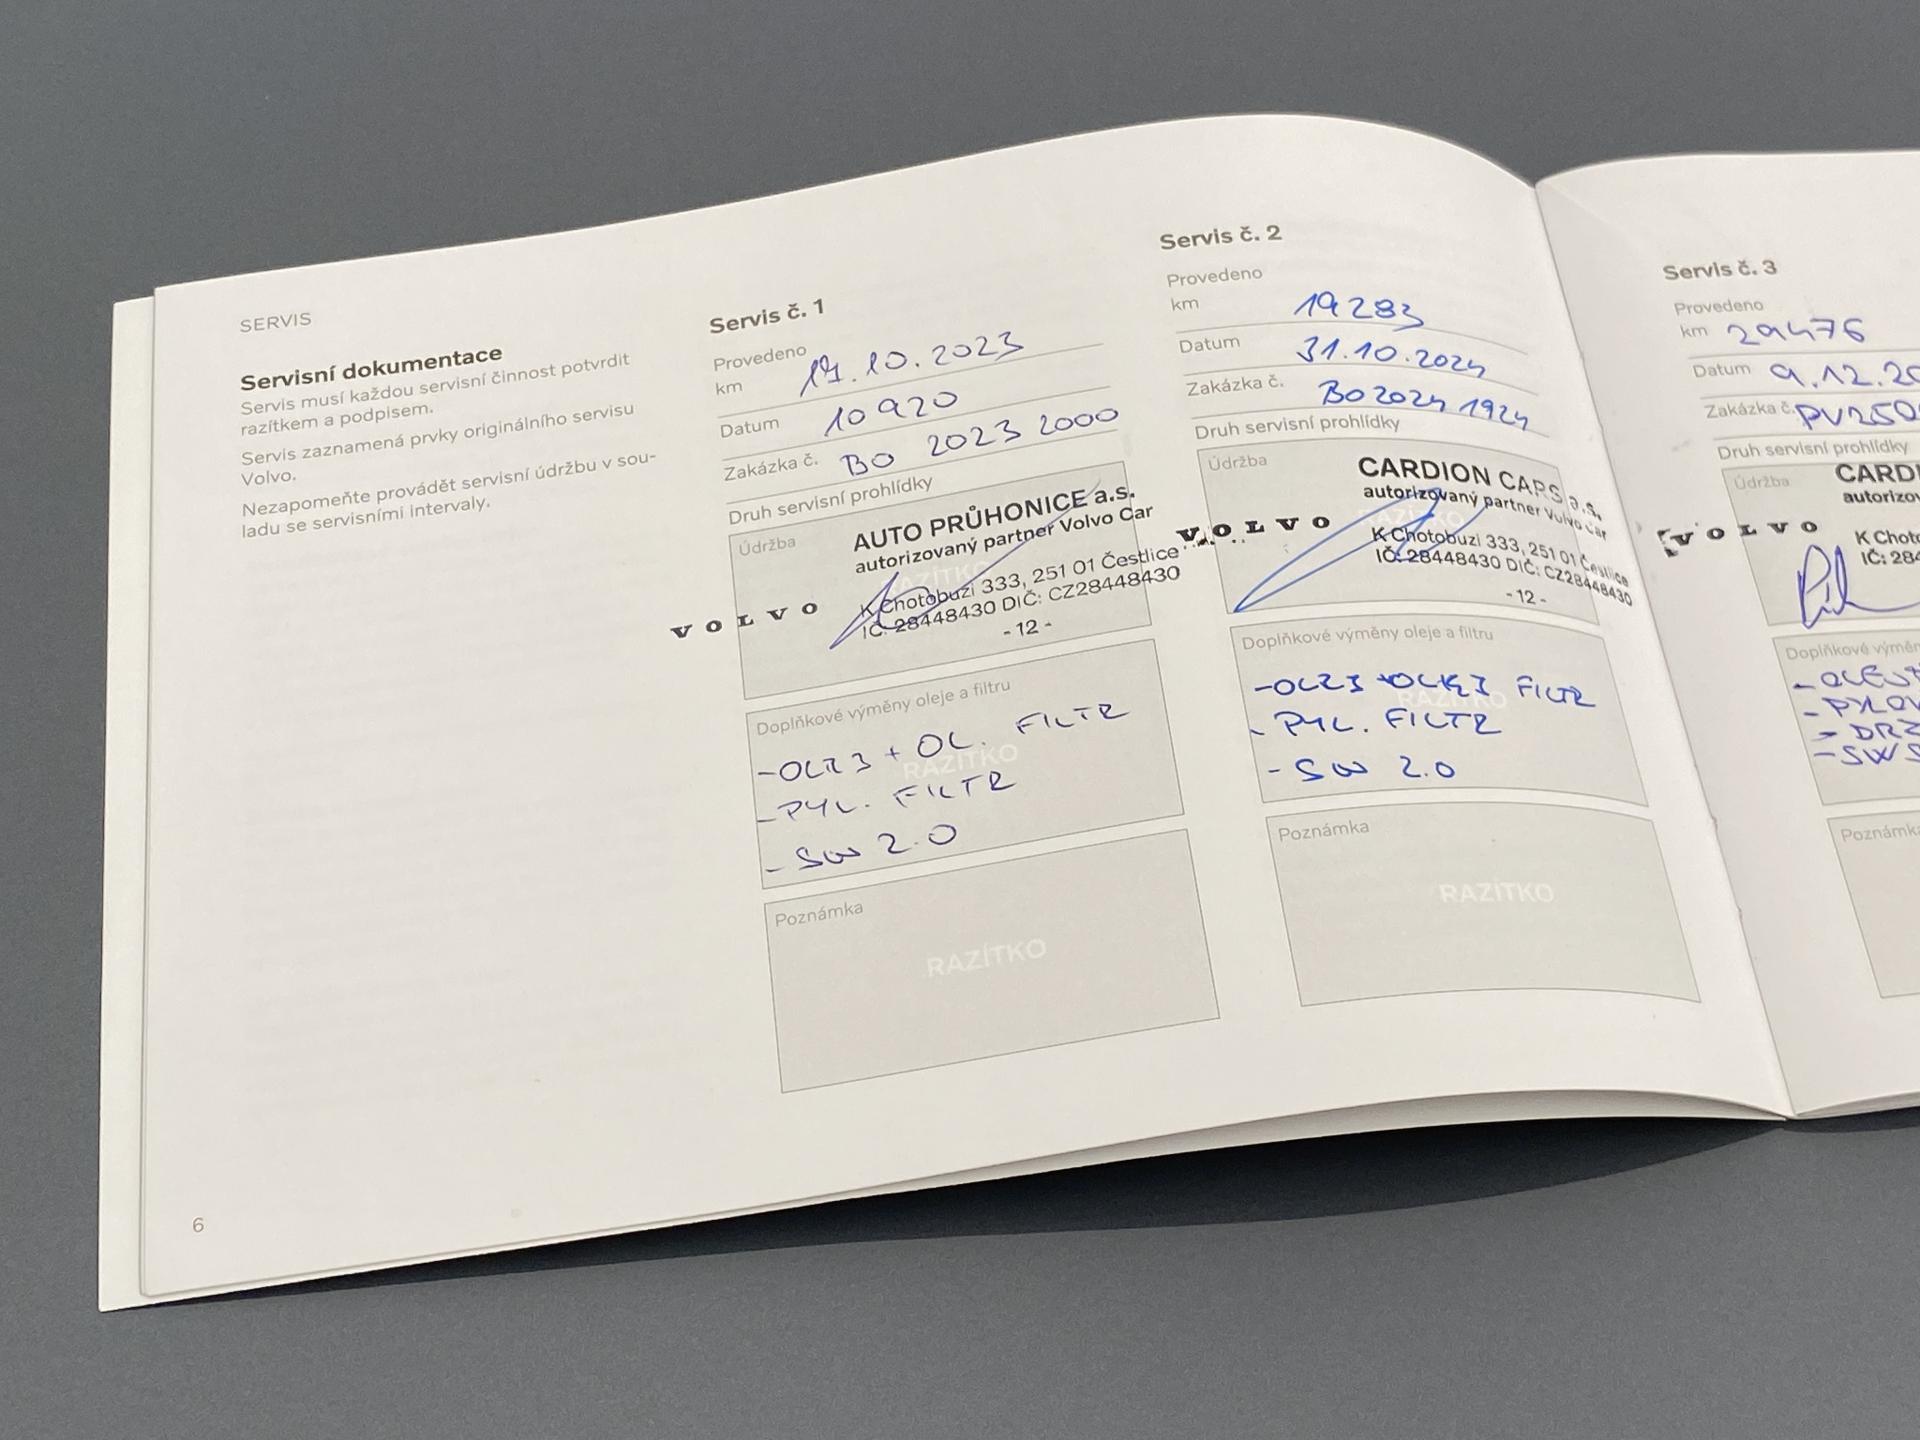 SERVIS
Servisní dokumentace
Servis musí každou servisní činnost potvrdit
razítkem a podpisem.
Servis zaznamená prvky originálního servisu
Volvo.
Nezapomeňte provádět servisní údržbu v sou-
ladu se servisními intervaly.
6
Servis č. 1
Provedeno
km 17.10.2023
Datum 10920
Zakázka č. BO 2023 2000
Druh servisní prohlídky
Údržba
AUTO PRŮHONICE a.s.
autorizovaný partner Volvo Car
RAZÍTKO
K Chotobuzi 333, 251 01 Čestlice
VOLVO
IČ: 28448430 DIČ: CZ28448430
- 12 -
Doplňkové výměny oleje a filtru
- OLEJ + OL. FILTR
RAZÍTKO
- PYL. FILTR
- SW 2.0
Poznámka
RAZÍTKO
Servis č. 2
Provedeno
km 19283
Datum 31.10.2024
Zakázka č. BO2024 1924
Druh servisní prohlídky
Údržba
CARDION CARS a.s.
autorizovaný partner Volvo Car
RAZÍTKO
VOLVO
K Chotobuzi 333, 251 01 Čestlice
IČ: 28448430 DIČ: CZ28448430
- 12 -
Doplňkové výměny oleje a filtru
- OLEJ + FILTR
RAZÍTKO
- PYL. FILTR
- SW 2.0
Poznámka
RAZÍTKO
Servis č. 3
Provedeno
km 29476
Datum 9.12.20
Zakázka č. PV250
Druh servisní prohlídky
Údržba
CARDI
autorizov
VOLVO
K Choto
IČ: 284
Doplňkové výměn
- OLEJ+
- PYLOV
- DRZ
- SW S
Poznámka